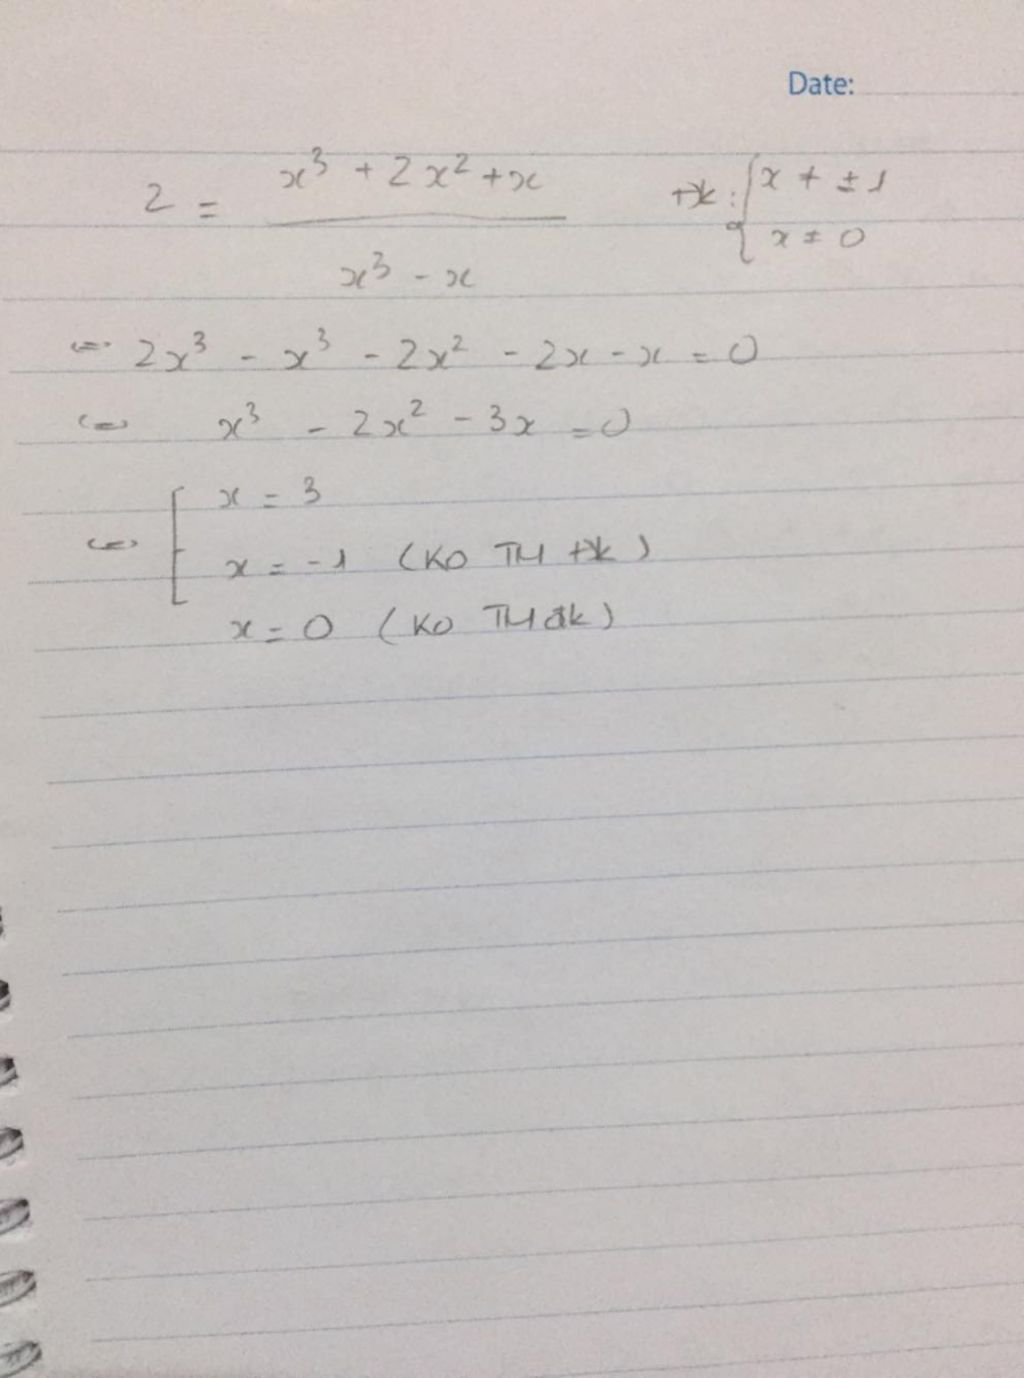 Date:
2 = (x³ + 2x² + x) / (x³ - x) đk: { x ≠ ±1
x ≠ 0
<=> 2x³ - x³ - 2x² - 2x - x = 0
<=> x³ - 2x² - 3x = 0
<=> [ x = 3
x = -1 (KO TM đk)
x = 0 (KO TM đk)